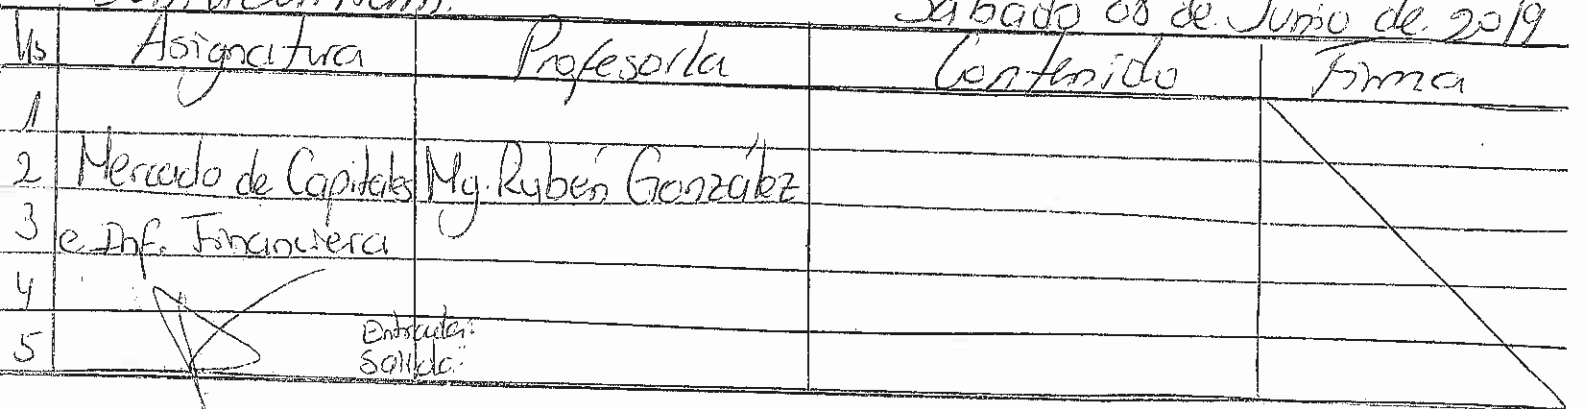 Sábado 08 de Junio de 2019
Hs Asignatura Profesor/a Contenido Firma
1
2 Mercado de Capitales Mg. Rubén González
3 e Inf. Financiera
4
Entrada:
5
Salida: